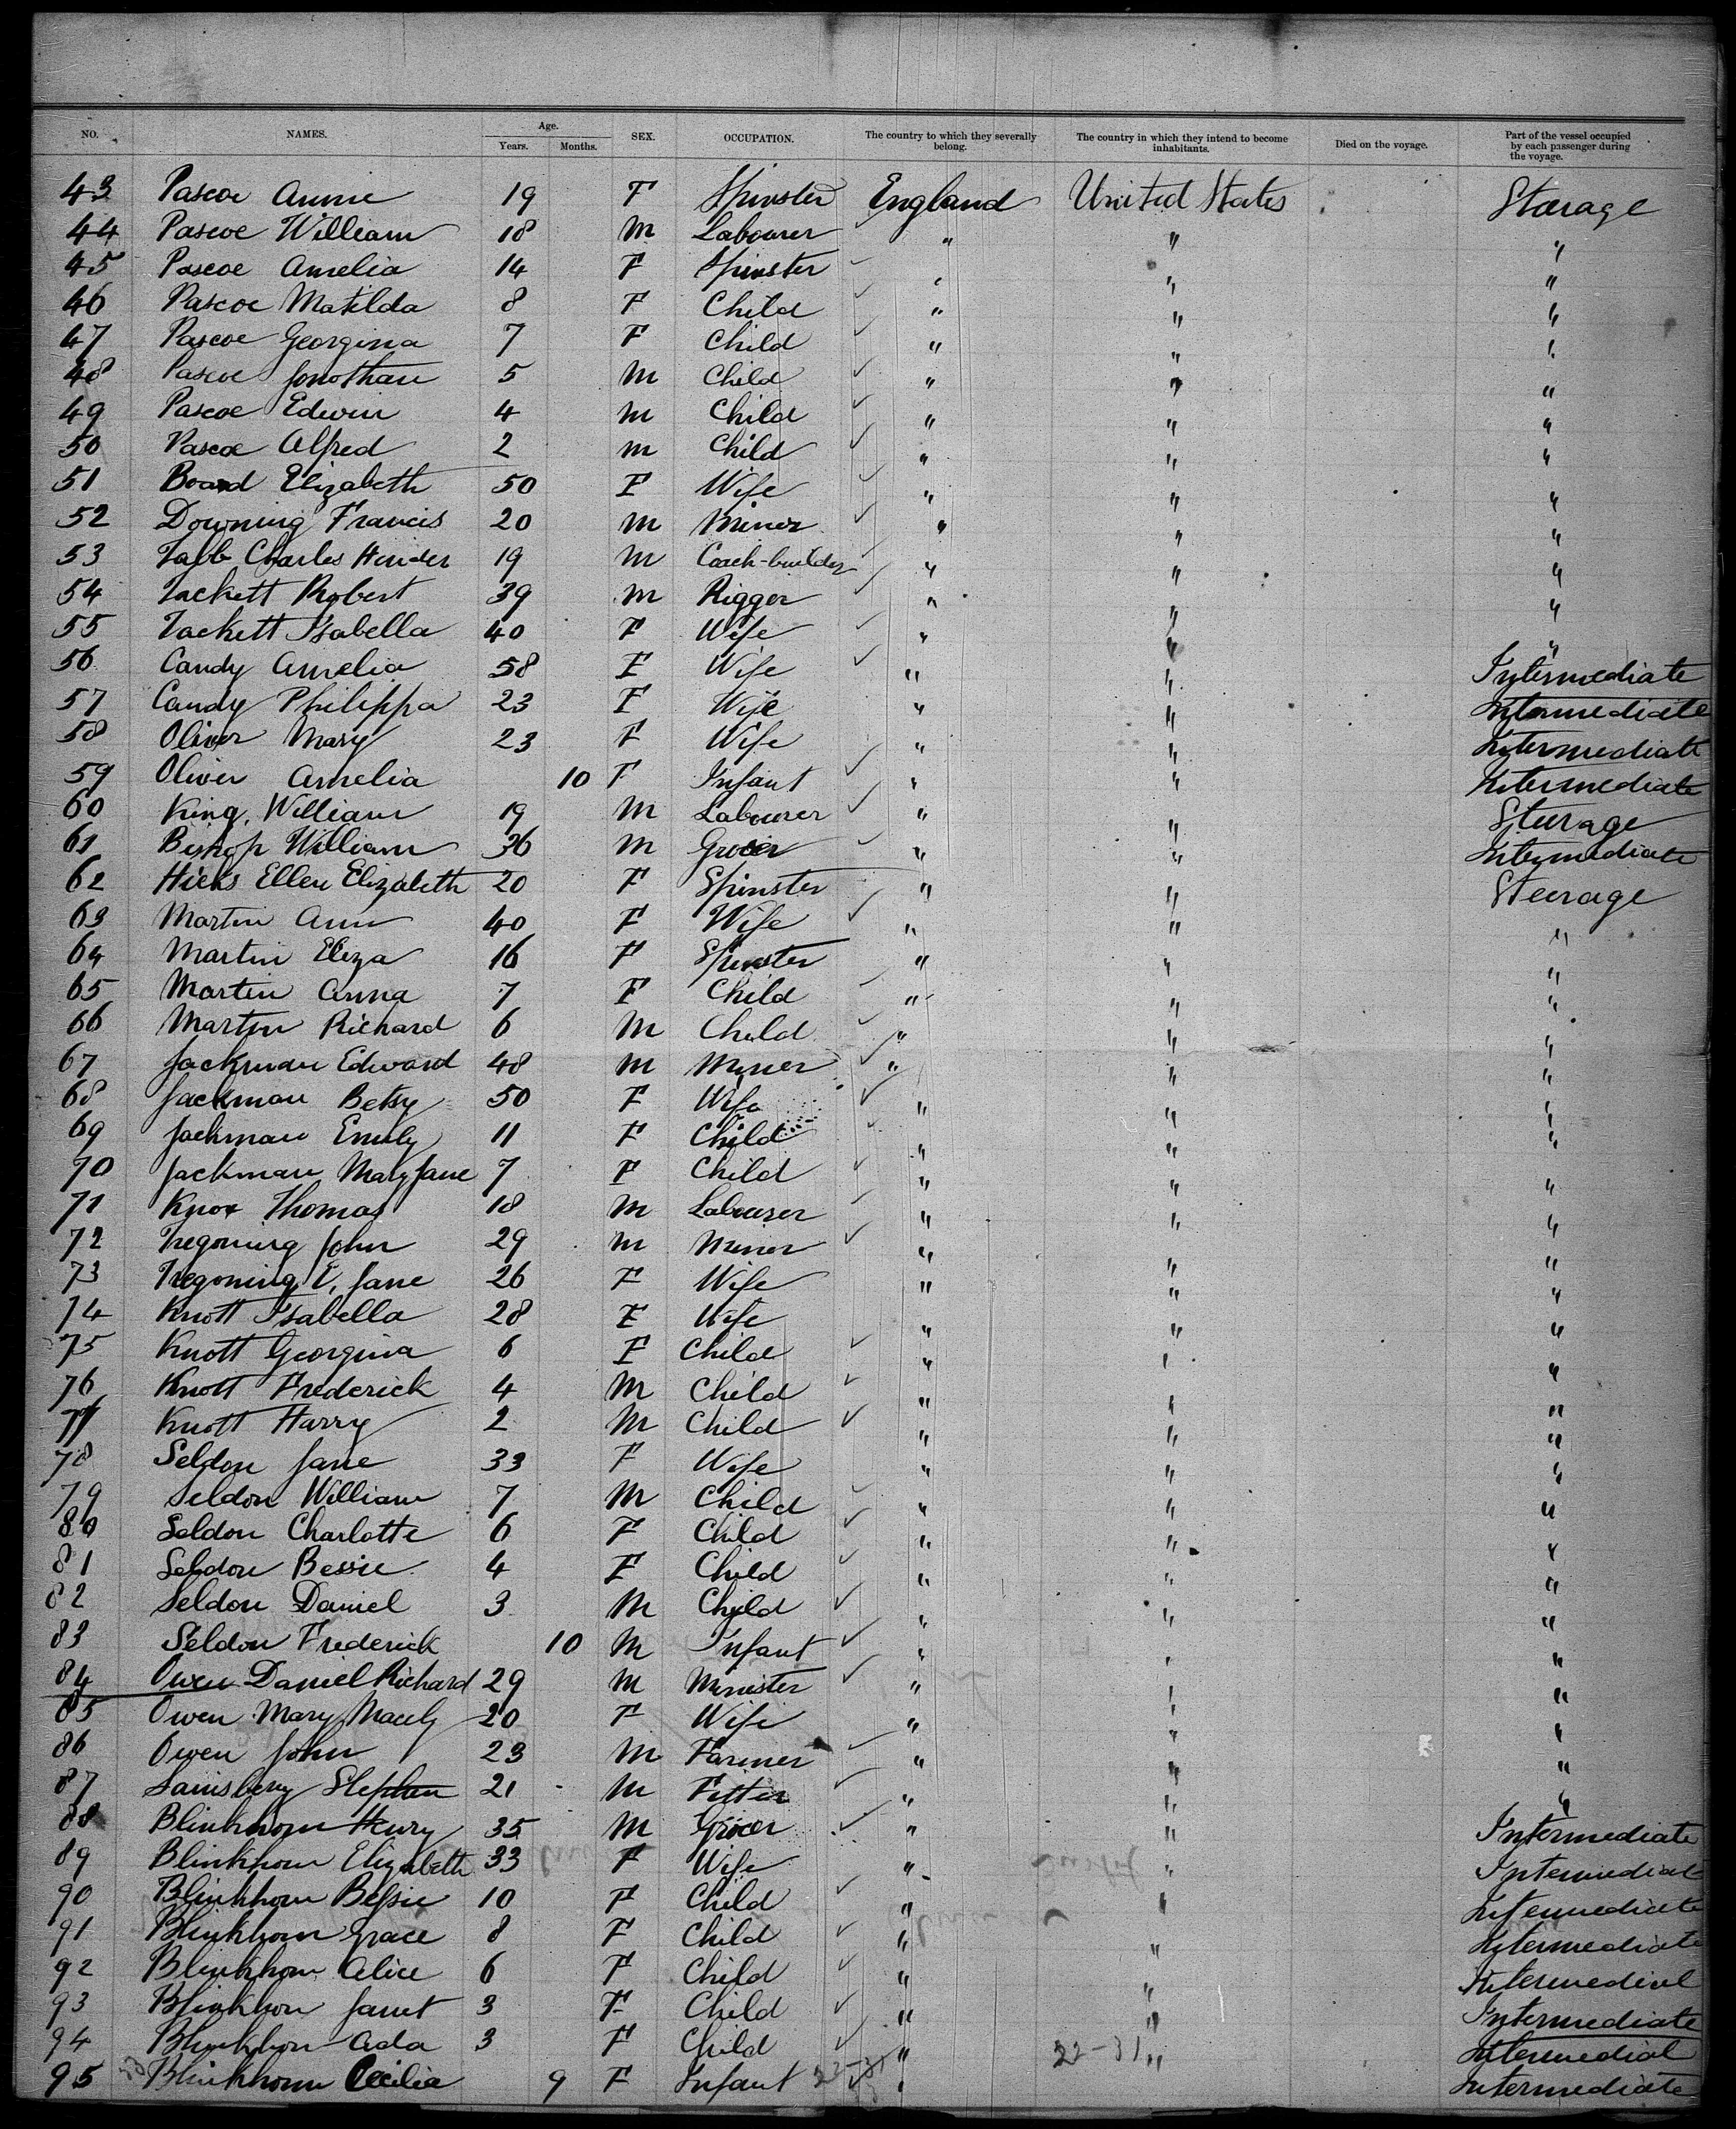 NO. NAMES. Age. Years. Months. SEX. OCCUPATION. The country to which they severally belong. The country in which they intend to become inhabitants. Died on the voyage. Part of the vessel occupied by each passenger during the voyage.
43 Pascoe Annie 19 F Spinster England United States Stearage
44 Pascoe William 18 M Labourer " " "
45 Pascoe Amelia 14 F Spinster " " "
46 Pascoe Matilda 8 F Child " " "
47 Pascoe Georgina 7 F Child " " "
48 Pascoe Jonothan 5 M Child " " "
49 Pascoe Edwin 4 M Child " " "
50 Pascoe Alfred 2 M Child " " "
51 Board Elizabeth 50 F Wife " " "
52 Downing Francis 20 M Miner " " "
53 Tabb Charles Hender 19 M Coach-builder " " "
54 Tackett Robert 39 M Rigger " " "
55 Tackett Isabella 40 F Wife " " "
56 Candy Amelia 58 F Wife " " Intermediate
57 Candy Philippa 23 F Wife " " Intermediate
58 Oliver Mary 23 F Wife " " Intermediate
59 Oliver Amelia 10 F Infant " " Intermediate
60 King, William 19 M Labourer " " Stearage
61 Bishop William 36 M Grocer " " Intermediate
62 Hicks Ellen Elizabeth 20 F Spinster " " Stearage
63 Martin Ann 40 F Wife " " "
64 Martin Eliza 16 F Spinster " " "
65 Martin Anna 7 F Child " " "
66 Martin Richard 6 M Child " " "
67 Jackman Edward 48 M Miner " " "
68 Jackman Betsy 50 F Wife " " "
69 Jackman Emily 11 F Child " " "
70 Jackman Mary Jane 7 F Child " " "
71 Knox Thomas 18 M Labourer " " "
72 Tregoning John 29 M Miner " " "
73 Tregoning E. Jane 26 F Wife " " "
74 Knott Isabella 28 F Wife " " "
75 Knott Georgina 6 F Child " " "
76 Knott Frederick 4 M Child " " "
77 Knott Harry 2 M Child " " "
78 Seldon Jane 33 F Wife " " "
79 Seldon William 7 M Child " " "
80 Seldon Charlotte 6 F Child " " "
81 Seldon Bessie 4 F Child " " "
82 Seldon Daniel 3 M Child " " "
83 Seldon Frederick 10 M Infant " " "
84 Owen Daniel Richard 29 M Minister " " "
85 Owen Mary 20 F Wife " " "
86 Owen John 23 M Farmer " " "
87 Sainsbery Stephen 21 M Fitter " " "
88 Blinkhorn Henry 35 M Grocer " " Intermediate
89 Blinkhorn Elizabeth 33 F Wife " " Intermediate
90 Blinkhorn Bessie 10 F Child " " Intermediate
91 Blinkhorn Grace 8 F Child " " Intermediate
92 Blinkhorn Alice 6 F Child " " Intermediate
93 Blinkhorn Janet 3 F Child " " Intermediate
94 Blinkhorn Ada 3 F Child " 22-31 " Intermediate
95 Blinkhorn Cecilia 9 F Infant " Intermediate